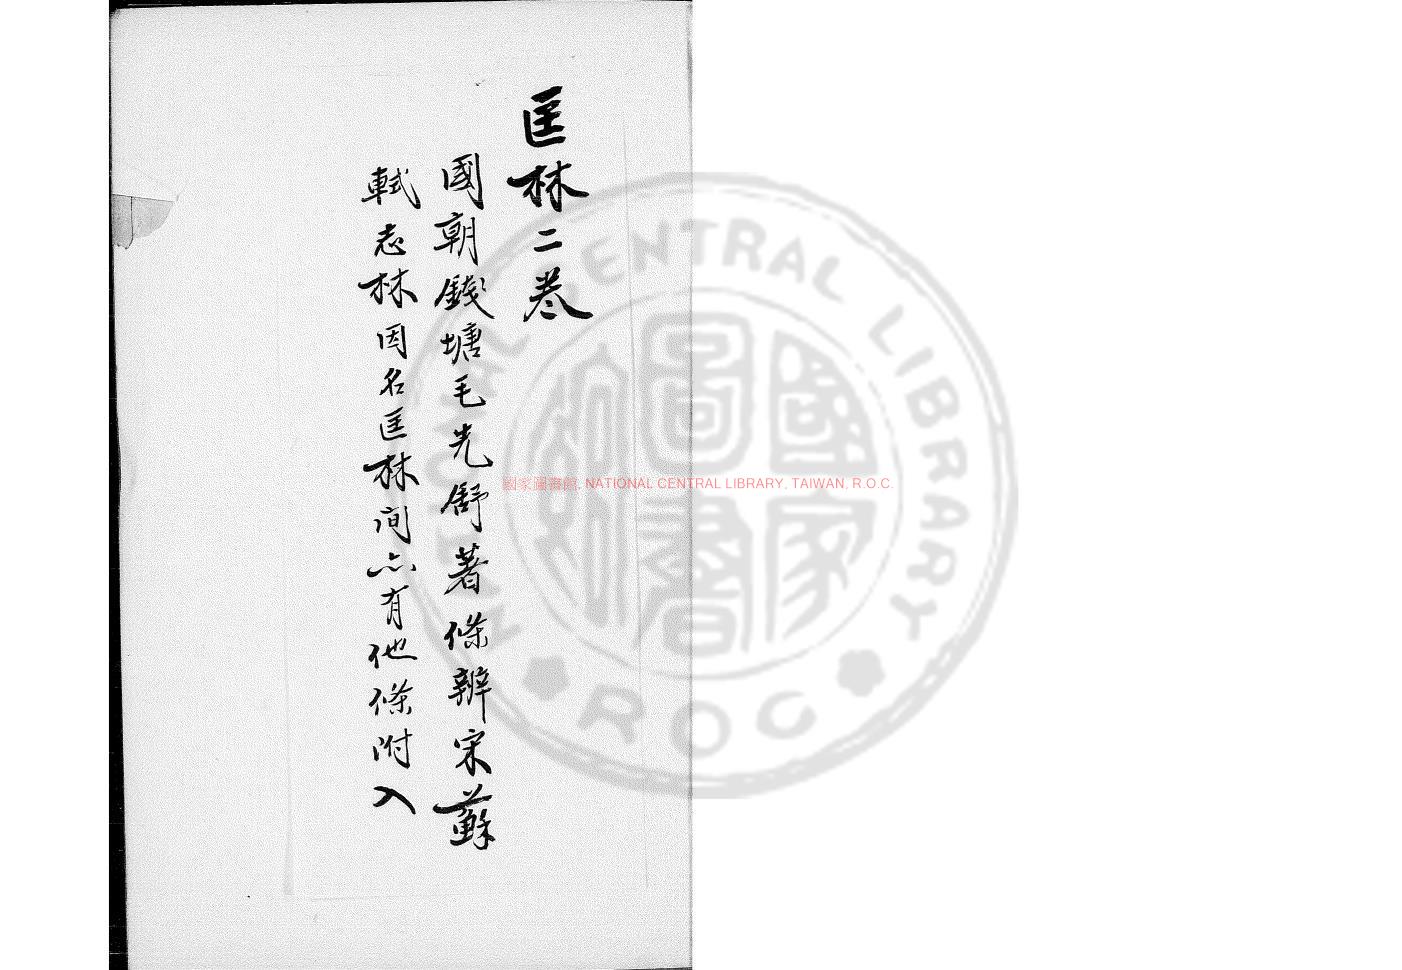 匡林二卷
國朝錢塘毛先舒著條辨宋蘇
軾志林因名匡林間亦有他條附入
國家圖書館, NATIONAL CENTRAL LIBRARY, TAIWAN, R.O.C.
NATIONAL CENTRAL LIBRARY
國家圖書
ROC